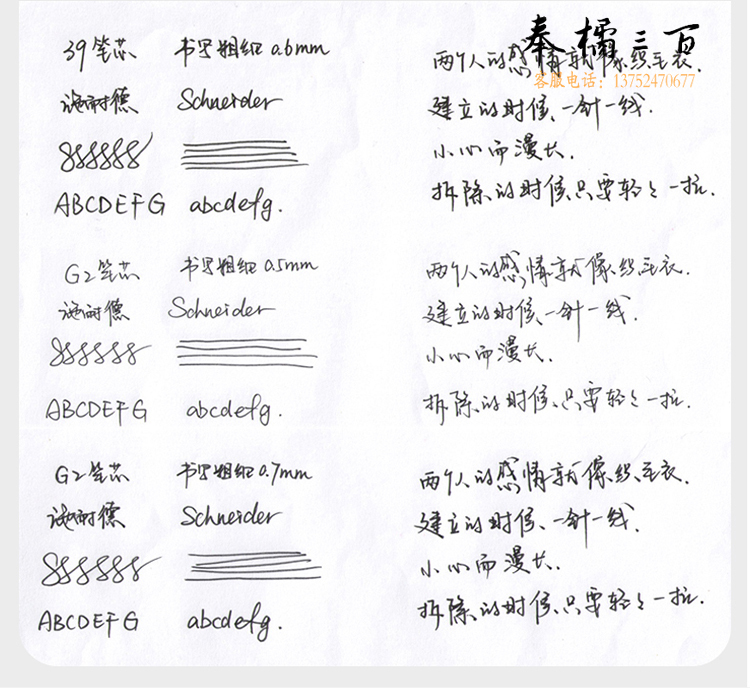 奉橘三百
客服电话：13752470677
39笔芯 书写粗细0.6mm
施耐德 Schneider
ABCDEFG abcdefg.
两个人的感情就像织毛衣.
建立的时候、一针一线.
小心而漫长.
拆除的时候、只要轻轻一拉.
G2笔芯 书写粗细0.5mm
施耐德 Schneider
ABCDEFG abcdefg.
两个人的感情就像织毛衣.
建立的时候、一针一线.
小心而漫长.
拆除的时候、只要轻轻一拉.
G2笔芯 书写粗细0.7mm
施耐德 Schneider
ABCDEFG abcdefg.
两个人的感情就像织毛衣.
建立的时候、一针一线.
小心而漫长.
拆除的时候、只要轻轻一拉.